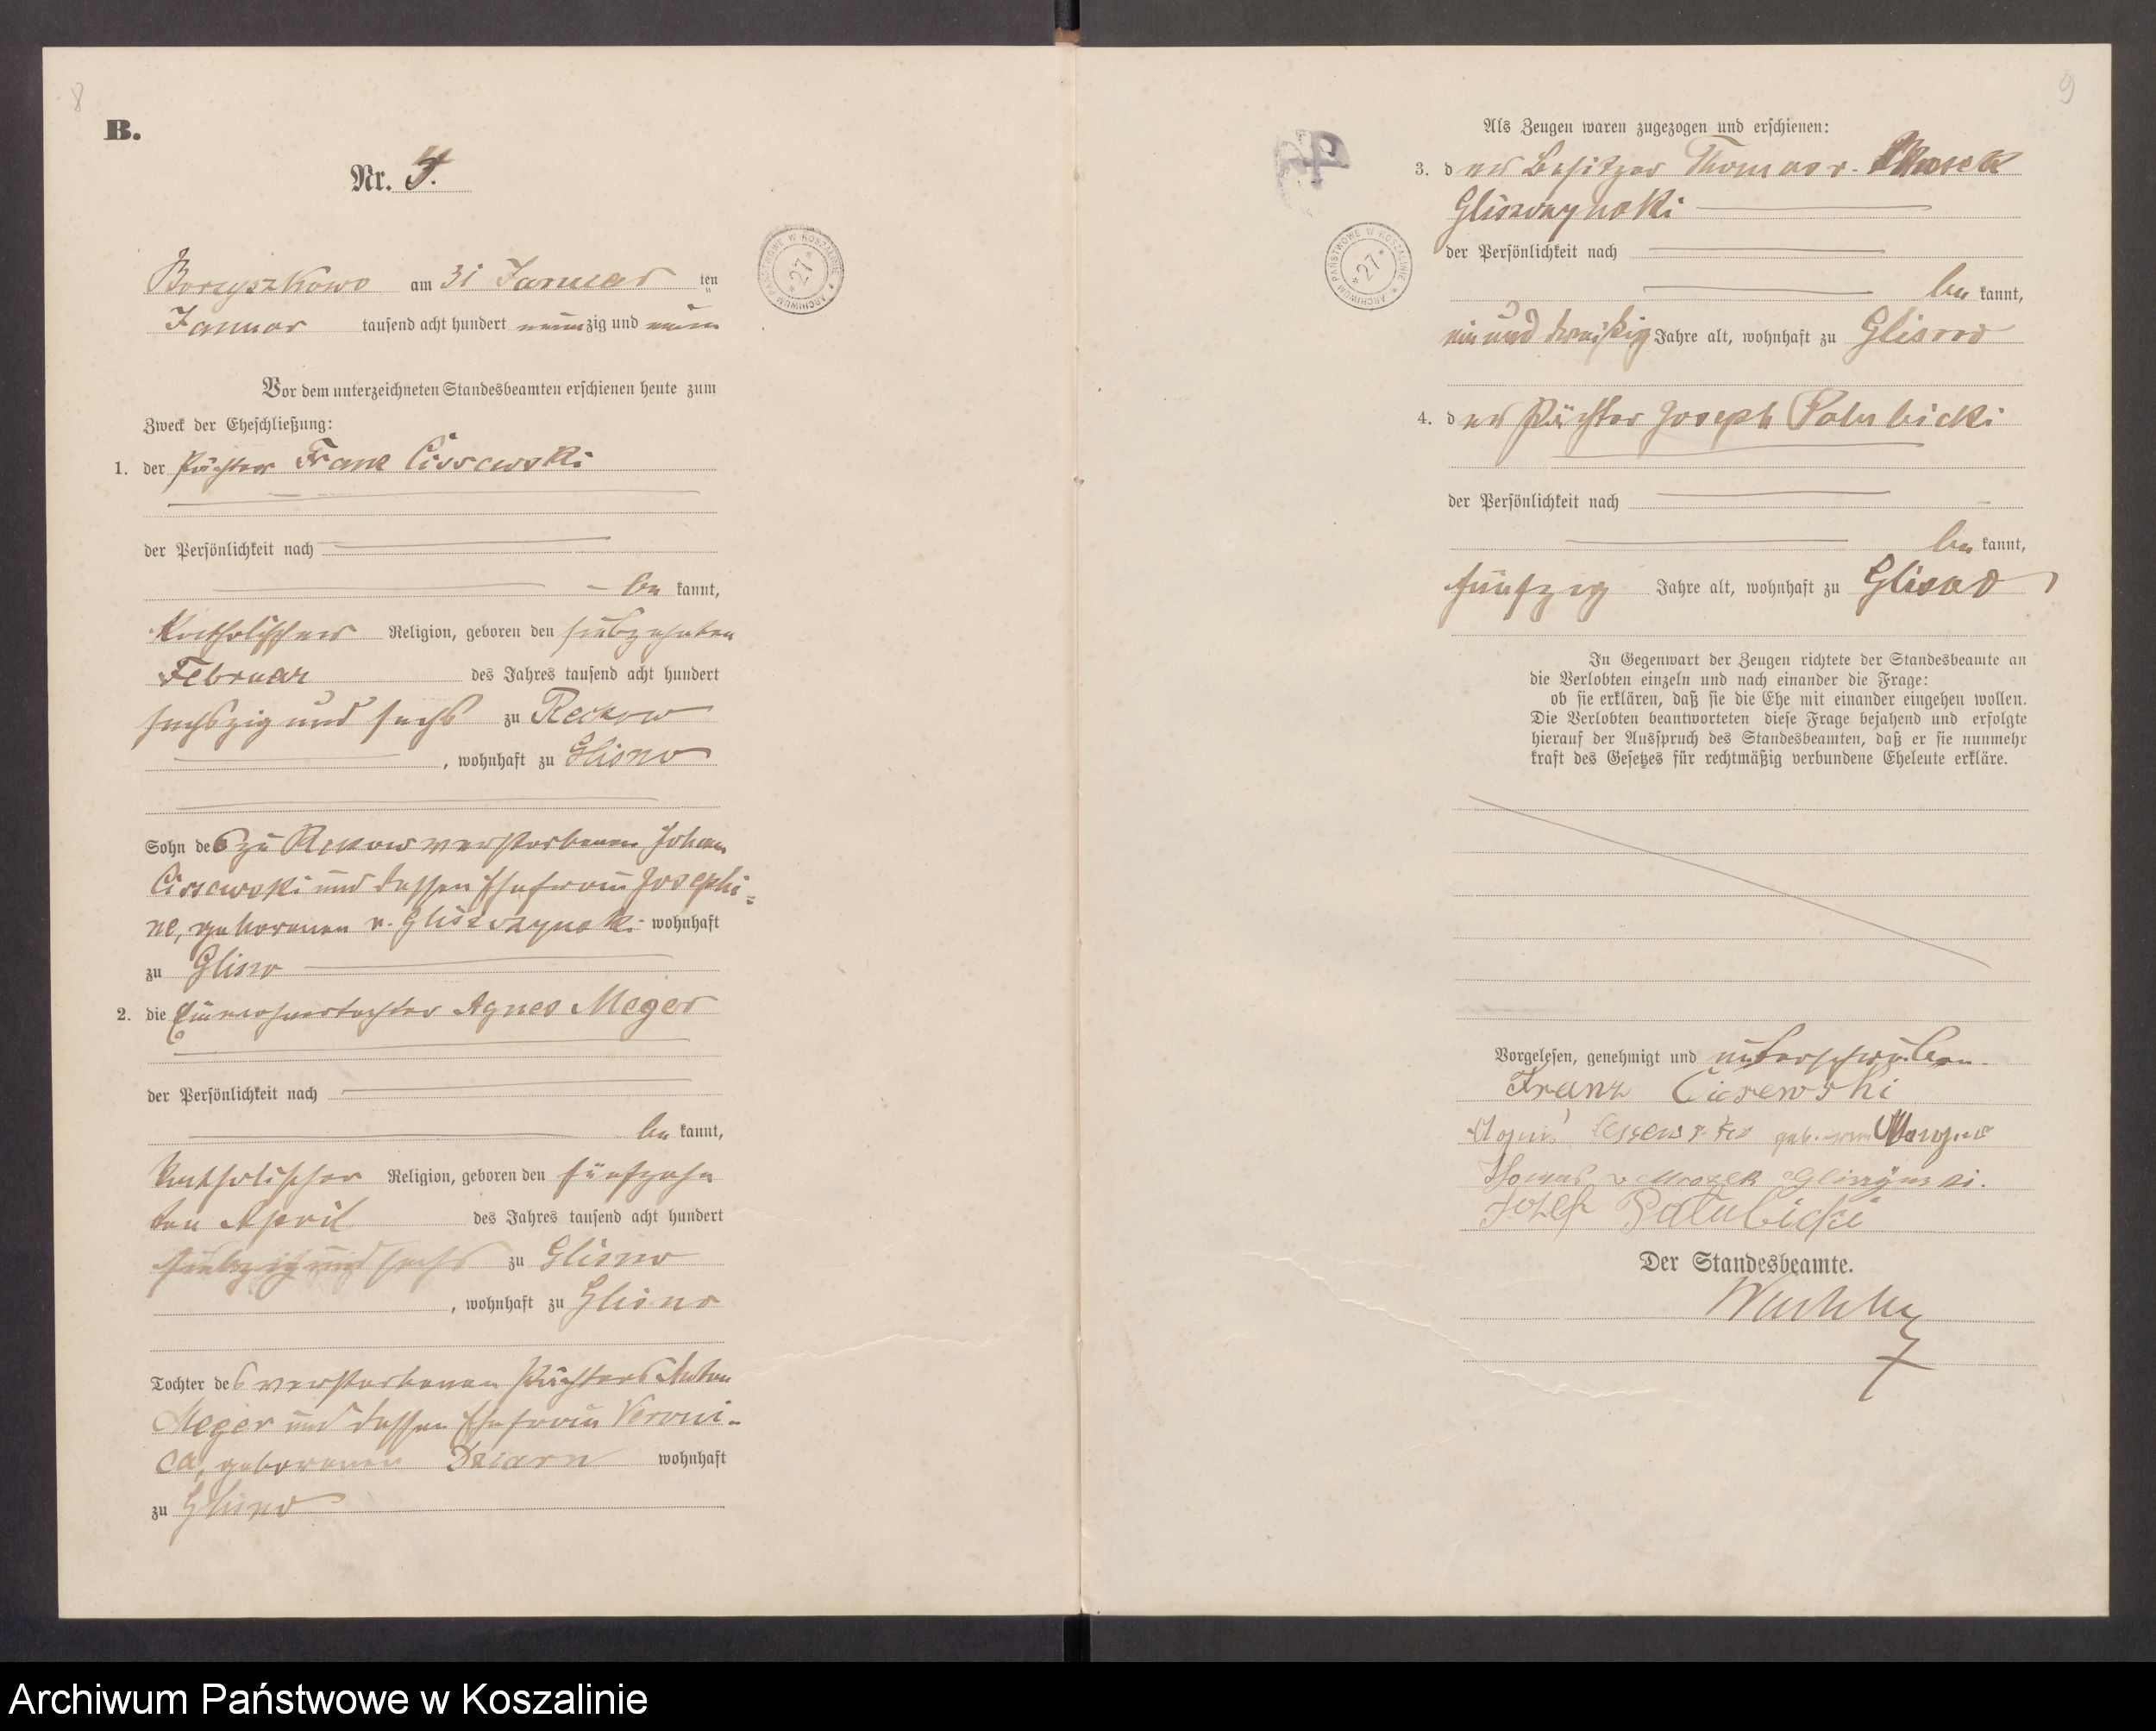 8
B.
Nr. 4.
Boryszkowo am 31 Januar ten
Januar tausend acht hundert neunzig und neun
Vor dem unterzeichneten Standesbeamten erschienen heute zum
Zweck der Eheschließung:
1. der Pächter Franz Cissewski
der Persönlichkeit nach
be kannt,
Katholischer Religion, geboren den siebzehnten
Februar des Jahres tausend acht hundert
sechszig und sechs zu Reckow
, wohnhaft zu Glisno
Sohn des zu Rekow verstorbenen Johann
Cissewski und dessen Ehefrau Josephi=
ne, geborenen v. Gliszczynski wohnhaft
zu Glisno
2. die Einwohnertochter Agnes Meger
der Persönlichkeit nach
be kannt,
katholischer Religion, geboren den fünfzehn
ten April des Jahres tausend acht hundert
siebzig und sechs zu Glisno
, wohnhaft zu Glisno
Tochter des verstorbenen Pächters Anton
Meger und dessen Ehefrau Veroni-
ca, geborenen Dziarn wohnhaft
zu Glisno
ARCHIWUM PAŃSTWOWE W KOSZALINIE * 27 *
9
Als Zeugen waren zugezogen und erschienen:
3. der Besitzer Thomas v. Mrosek
Gliszczynski
der Persönlichkeit nach
be kannt,
ein und dreißig Jahre alt, wohnhaft zu Glisno
4. der Pächter Joseph Palubicki
der Persönlichkeit nach
be kannt,
fünfzig Jahre alt, wohnhaft zu Glisno
In Gegenwart der Zeugen richtete der Standesbeamte an
die Verlobten einzeln und nach einander die Frage:
ob sie erklären, daß sie die Ehe mit einander eingehen wollen.
Die Verlobten beantworteten diese Frage bejahend und erfolgte
hierauf der Ausspruch des Standesbeamten, daß er sie nunmehr
kraft des Gesetzes für rechtmäßig verbundene Eheleute erkläre.
Vorgelesen, genehmigt und unterschrieben.
Franz Cissewski
geb.
Thomas v Mrozek
Josef Palubicki
Der Standesbeamte.
ARCHIWUM PAŃSTWOWE W KOSZALINIE * 27 *
Archiwum Państwowe w Koszalinie